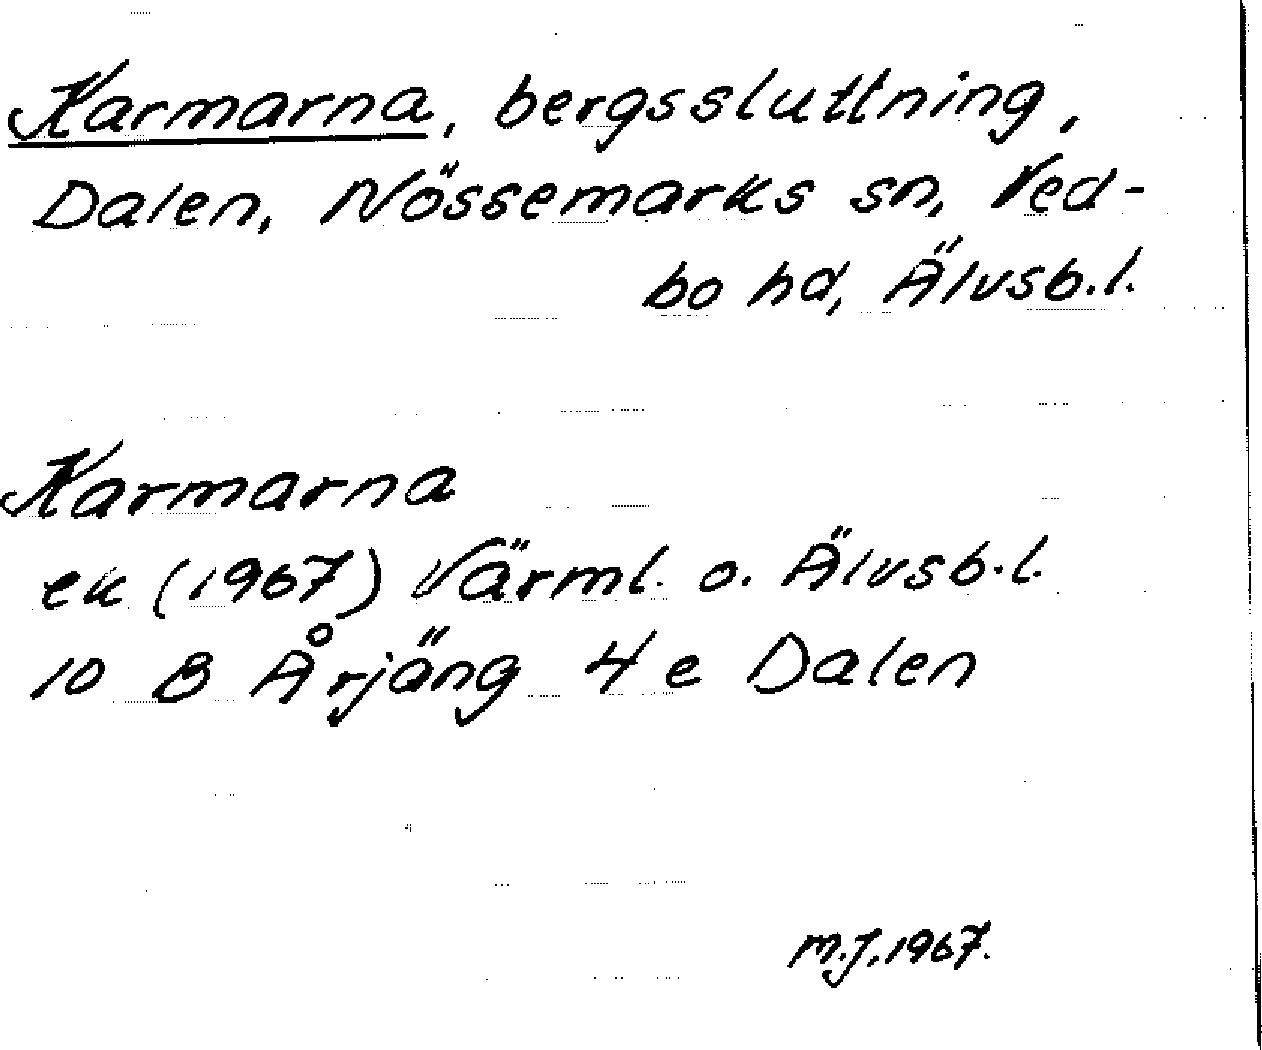 Karmarna, bergssluttning,
Dalen, Nössemarks sn, Ved-
bo hd, Älvsb.l.
Karmarna
ek (1967) Värml. o. Älvsb.l.
10 B Årjäng 4 e Dalen
M.J.1967.